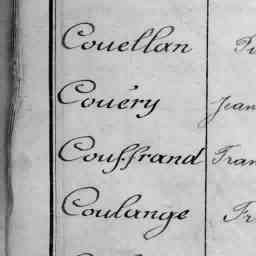 Couellan
Couëry Jean
Couffrand Fran
Coulange Fr